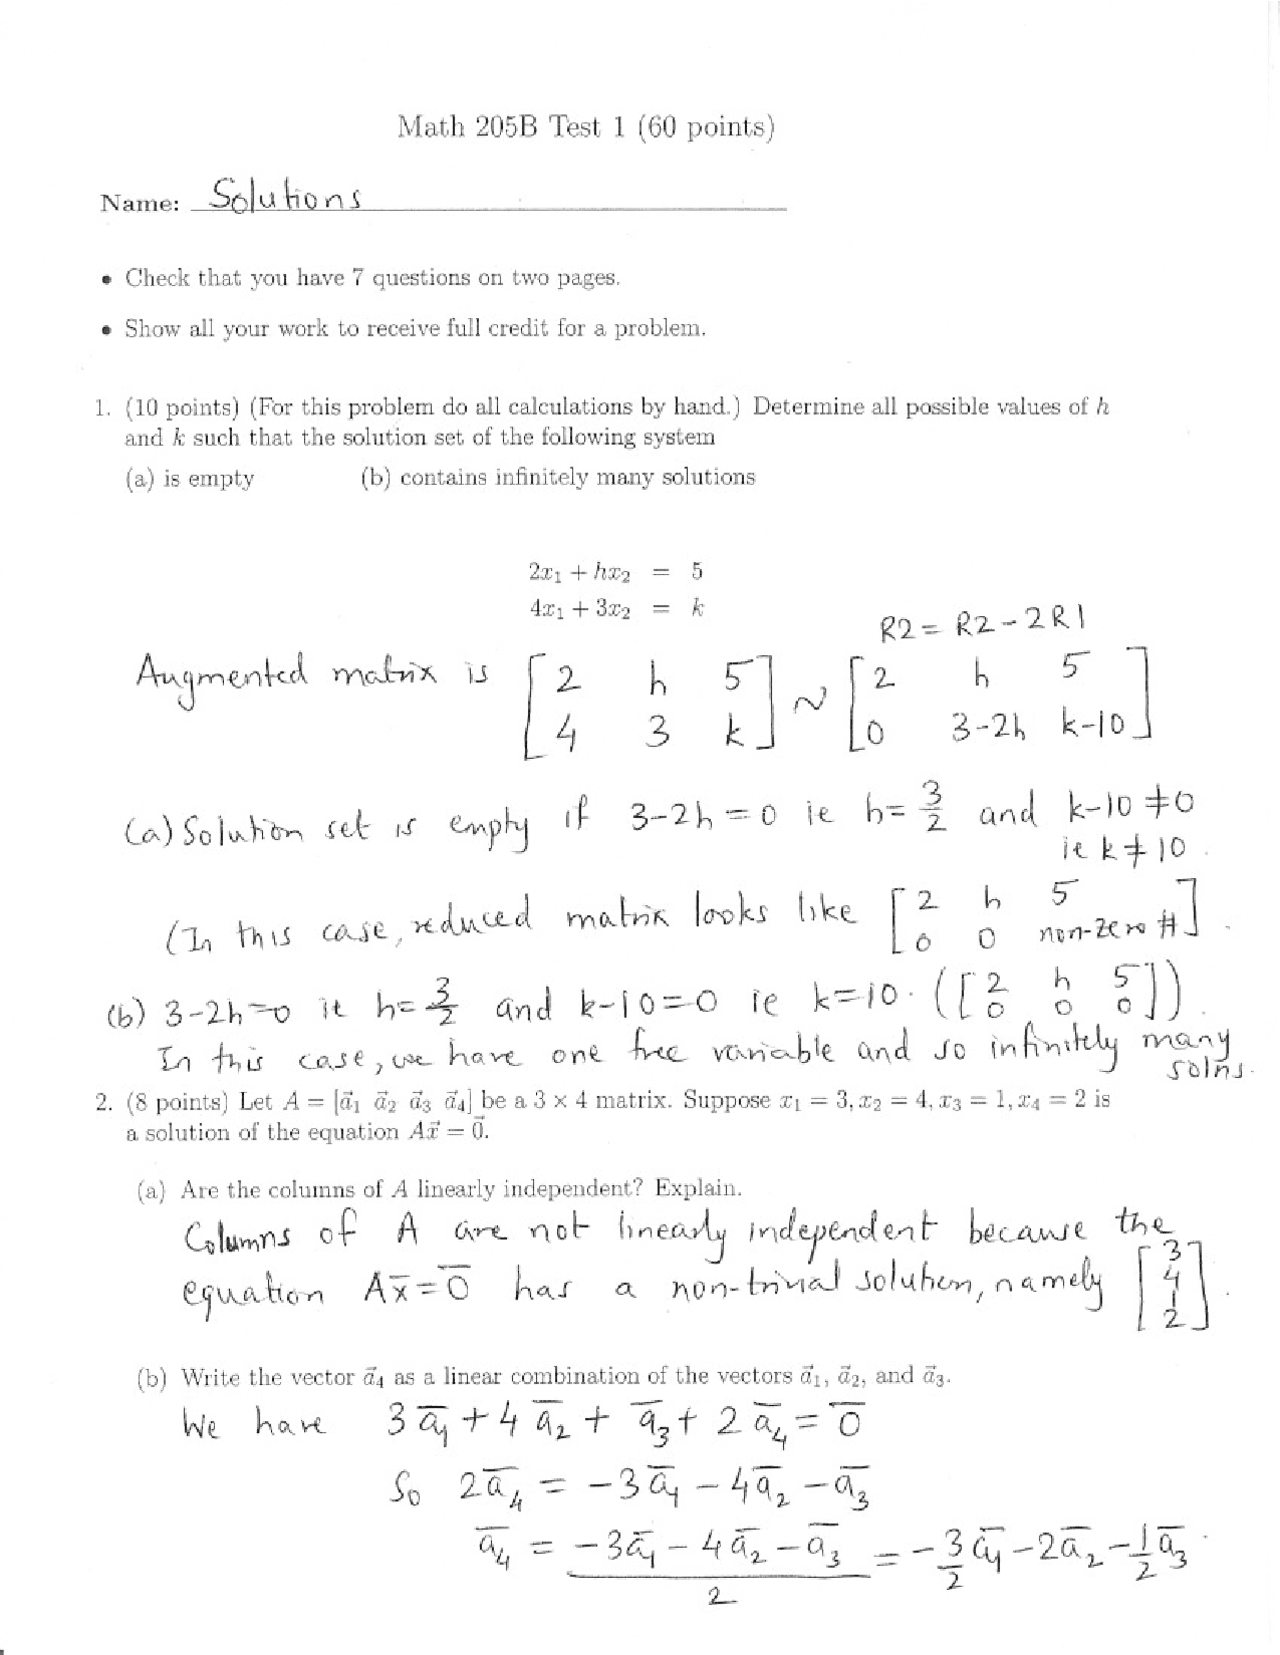 Math 205B Test 1 (60 points)
Name: Solutions
• Check that you have 7 questions on two pages.
• Show all your work to receive full credit for a problem.
1. (10 points) (For this problem do all calculations by hand.) Determine all possible values of h
and k such that the solution set of the following system
(a) is empty (b) contains infinitely many solutions
2x₁ + hx₂ = 5
4x₁ + 3x₂ = k
R2 = R2 - 2R1
Augmented matrix is [2 h 5; 4 3 k] ~ [2 h 5; 0 3-2h k-10]
(a) Solution set is empty if 3-2h = 0 ie h = 3/2 and k-10 ≠ 0
ie k ≠ 10.
(In this case, reduced matrix looks like [2 h 5; 0 0 non-zero #].
(b) 3-2h=0 ie h = 3/2 and k-10=0 ie k=10. ([2 h 5; 0 0 0]).
In this case, we have one free variable and so infinitely many
solns.
2. (8 points) Let A = [a⃗₁ a⃗₂ a⃗₃ a⃗₄] be a 3 × 4 matrix. Suppose x₁ = 3, x₂ = 4, x₃ = 1, x₄ = 2 is
a solution of the equation Ax⃗ = 0⃗.
(a) Are the columns of A linearly independent? Explain.
Columns of A are not linearly independent because the
equation Ax̄ = 0̄ has a non-trivial solution, namely [3; 4; 1; 2].
(b) Write the vector a⃗₄ as a linear combination of the vectors a⃗₁, a⃗₂, and a⃗₃.
We have 3ā₁ + 4ā₂ + ā₃ + 2ā₄ = 0̄
So 2ā₄ = -3ā₁ - 4ā₂ - ā₃
ā₄ = (-3ā₁ - 4ā₂ - ā₃)/2 = -3/2 ā₁ - 2ā₂ - 1/2 ā₃.